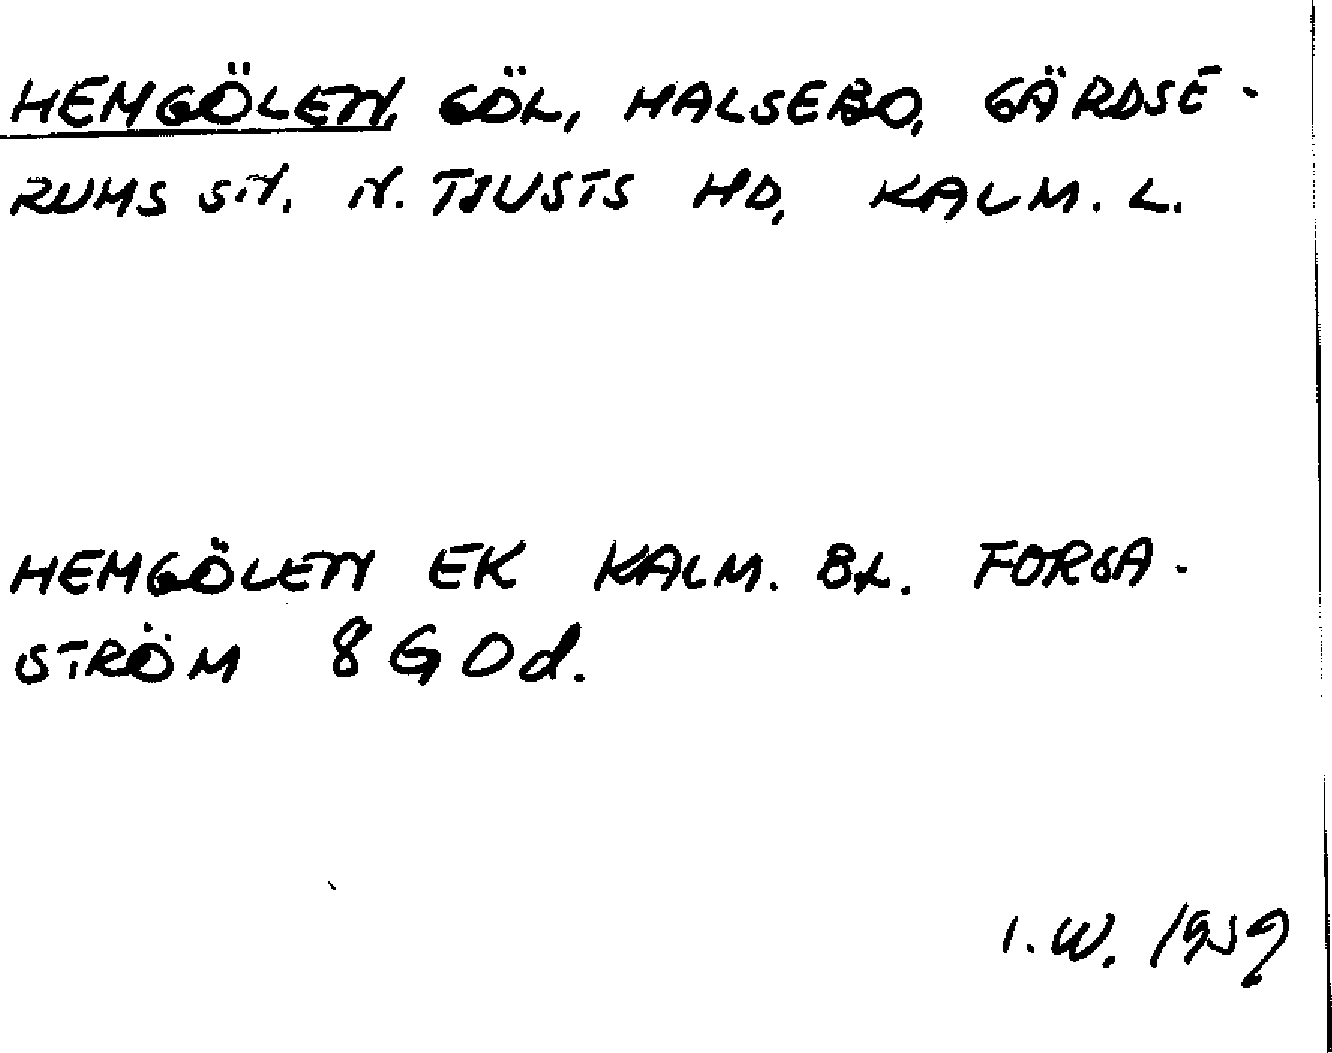 HEMGÖLEN, GÖL, HALSEBO, GÄRDSE-
RUMS SN. N. TJUSTS HD, KALM. L.
HEMGÖLEN EK KALM. BL. FORSA-
STRÖM 8 G O d.
I. W. 1959